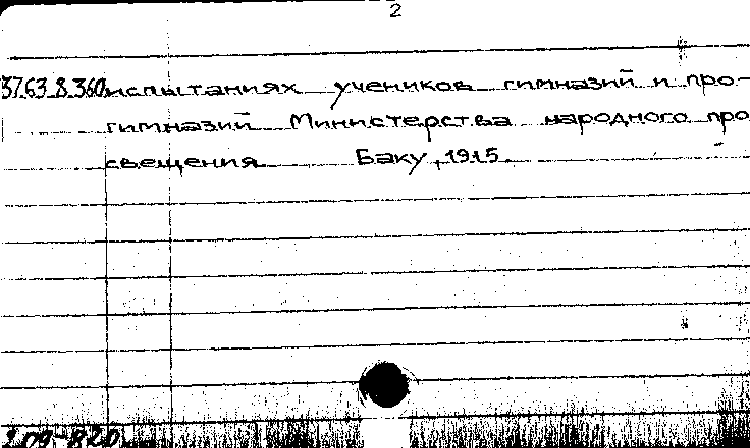 2
37.63.8.360 испытаниях учеников гимназий и про-
гимназий Министерства народного про
свещения Баку, 1915.